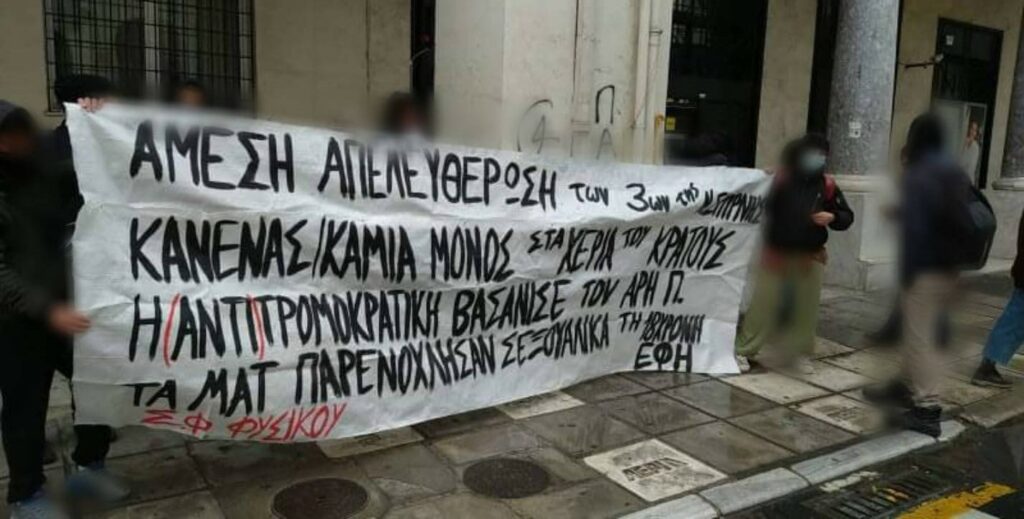 ΑΜΕΣΗ ΑΠΕΛΕΥΘΕΡΩΣΗ των 3ων της Ν.ΣΜΥΡΝΗΣ
ΚΑΝΕΝΑΣ/ΚΑΜΙΑ ΜΟΝΟΣ ΣΤΑ ΧΕΡΙΑ του ΚΡΑΤΟΥΣ
Η (ΑΝΤΙ)ΤΡΟΜΟΚΡΑΤΙΚΗ ΒΑΣΑΝΙΣΕ ΤΟΝ ΑΡΗ Π.
ΤΑ ΜΑΤ ΠΑΡΕΝΟΧΛΗΣΑΝ ΣΕΞΟΥΑΛΙΚΑ ΤΗ 18ΧΡΟΝΗ
ΕΦΗ
ΣΦ ΦΥΣΙΚΟΥ